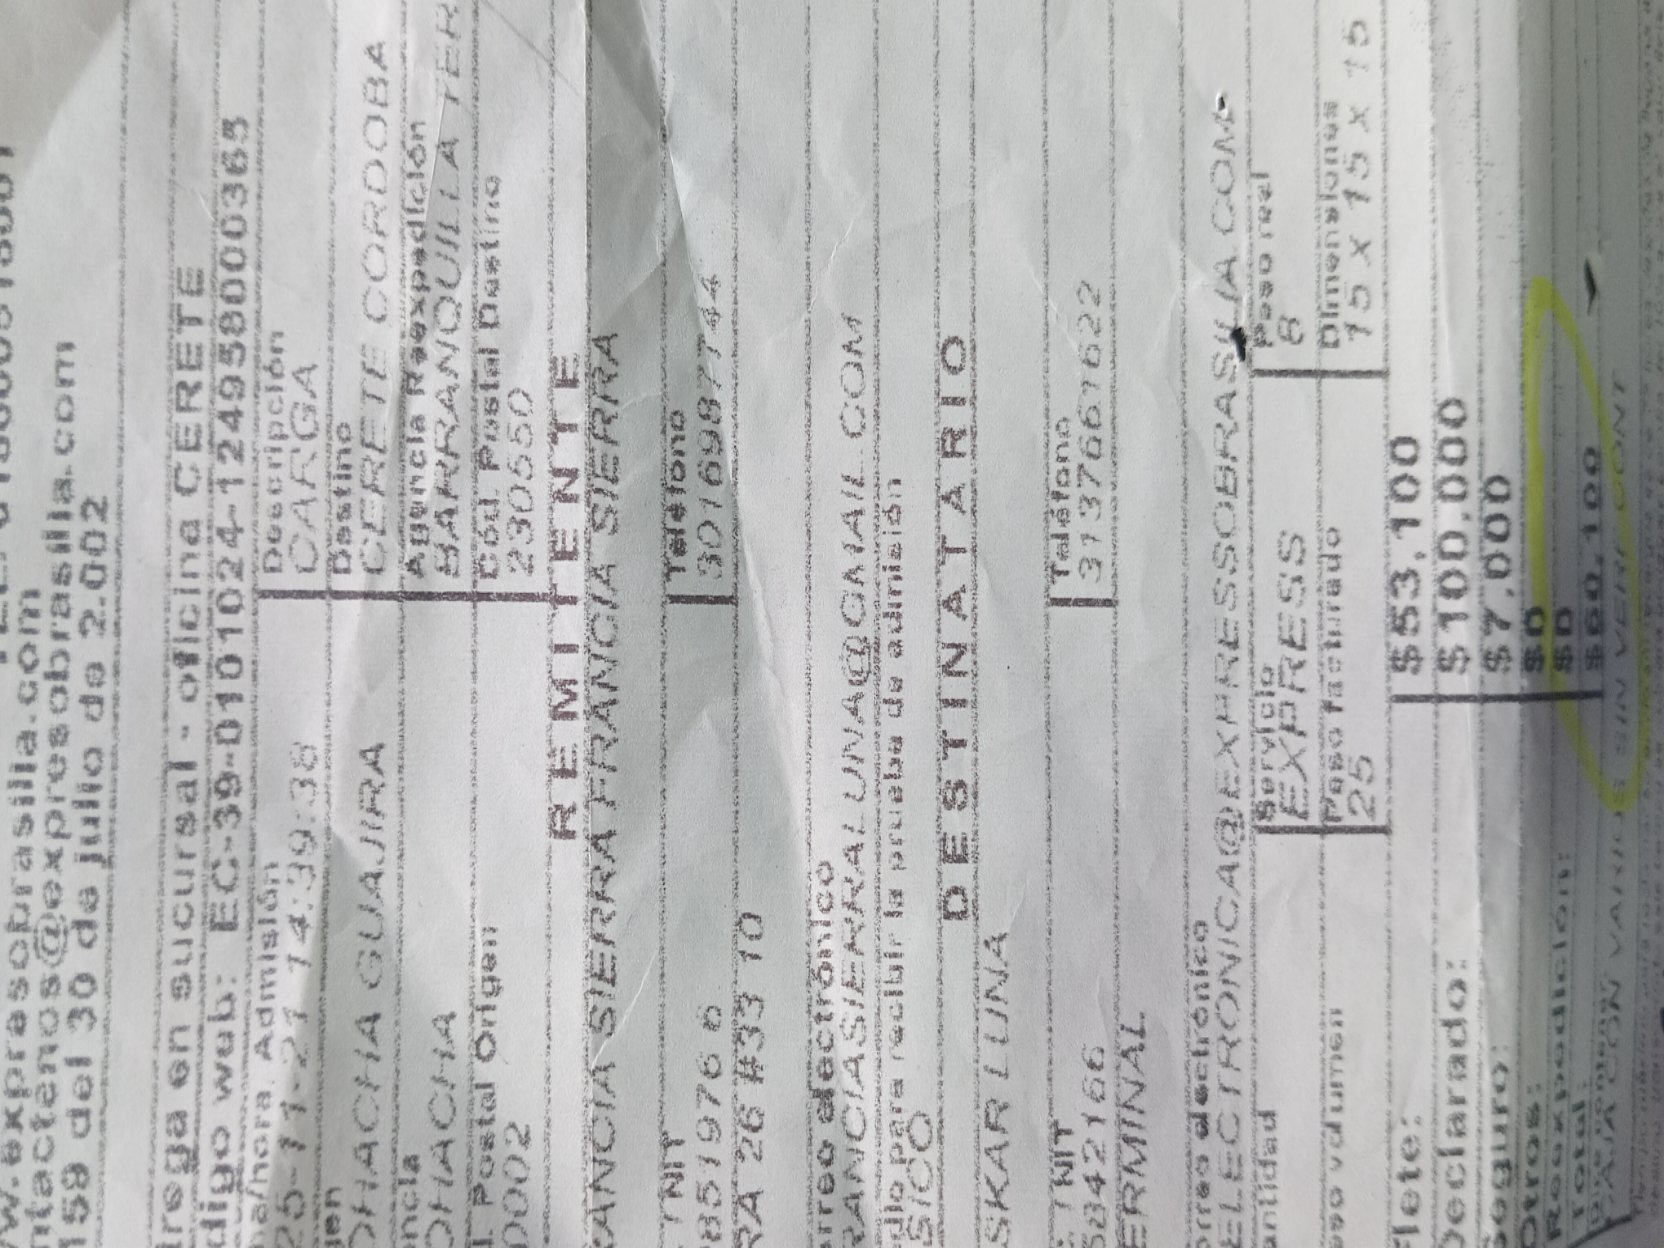 w.expresobrasilia.com
ntactenos@expresobrasilia.com
159 del 30 de julio de 2.002
trega en sucursal - oficina CERETE
digo web: EC-39-0101024-12495800036
ha/hora. Admisión Descripción
25-11-21 14:39:38 CARGA
gen Destino
OHACHA GUAJIRA CERETE CORDOBA
encia Agencia Reexpedición
OHACHA BARRANQUILLA TER
d. Postal Origen Cód. Postal Destino
0002 230550
REMITENTE
ANCIA SIERRA FRANCIA SIERRA
/ NIT Telefono
7851976 6 3016987744
RA 26 #33 10
rreo electrónico
RANCIASIERRALUNA@GMAIL.COM
dio para recibir la prueba de admisión
SICO
DESTINATARIO
SKAR LUNA
/ NIT Telefono
5842166 3137661622
ERMINAL
orreo electrónico
ELECTRONICA@EXPRESSOBRASILIA.COM
antidad Servicio Peso real
EXPRESS 8
eso volumen Peso facturado Dimensiones
25 15 x 15 x 15
Flete: $53,100
Declarado: $100,000
Seguro: $7,000
Otros: $0
Reexpedicion: $0
Total: $60,100
CON VARIOS SIN VERF CONT